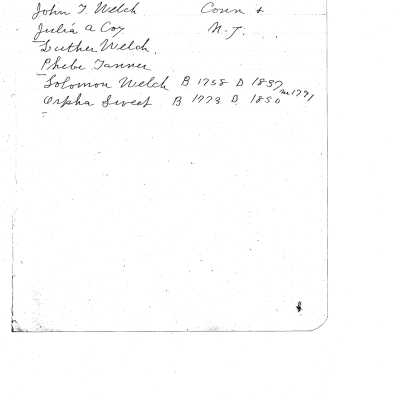 John T Welch Conn +
Julia A Coy N.J.
Luther Welch.
Phebe Tanner
Solomon Welch B 1758 D 1837 m 1791
Orpha Sweet B 1773 D. 1850